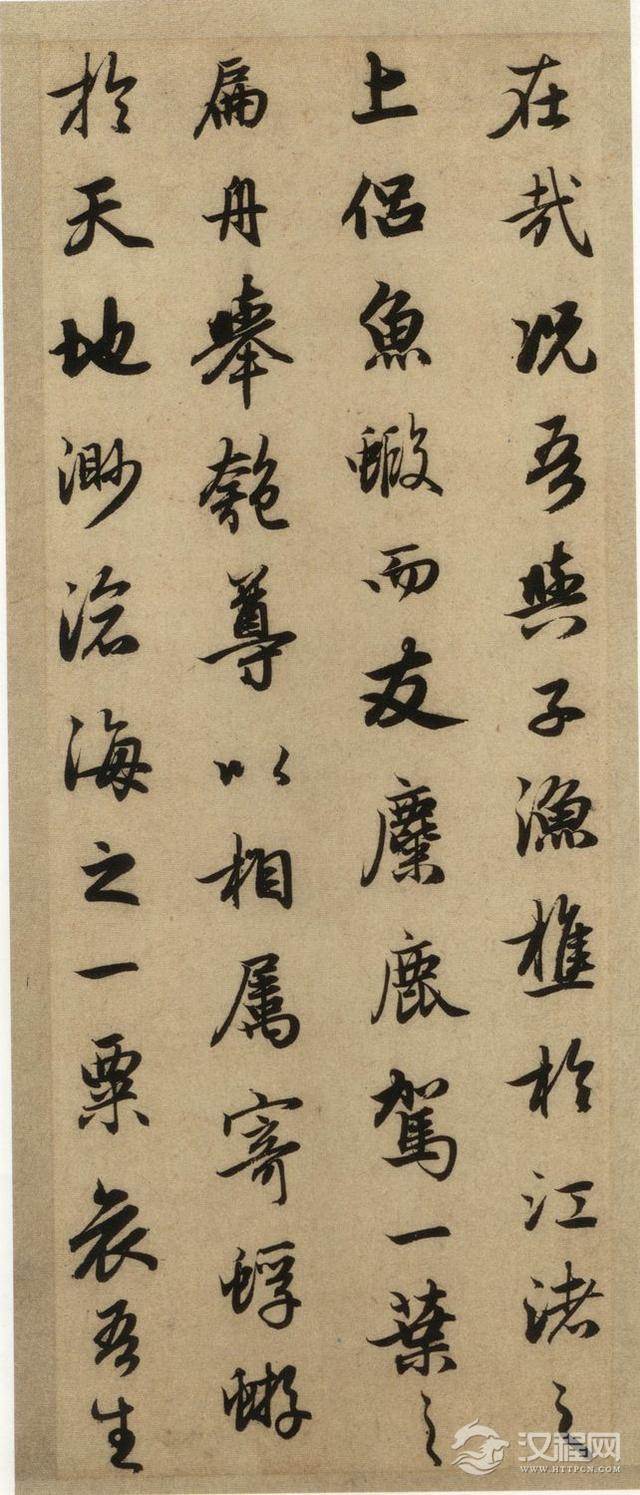 在哉况吾與子漁樵於江渚之
上侣魚蝦而友麋鹿駕一葉之
扁舟舉匏尊以相属寄蜉蝣
於天地渺滄海之一粟哀吾生
汉程网
WWW.HTTPCN.COM